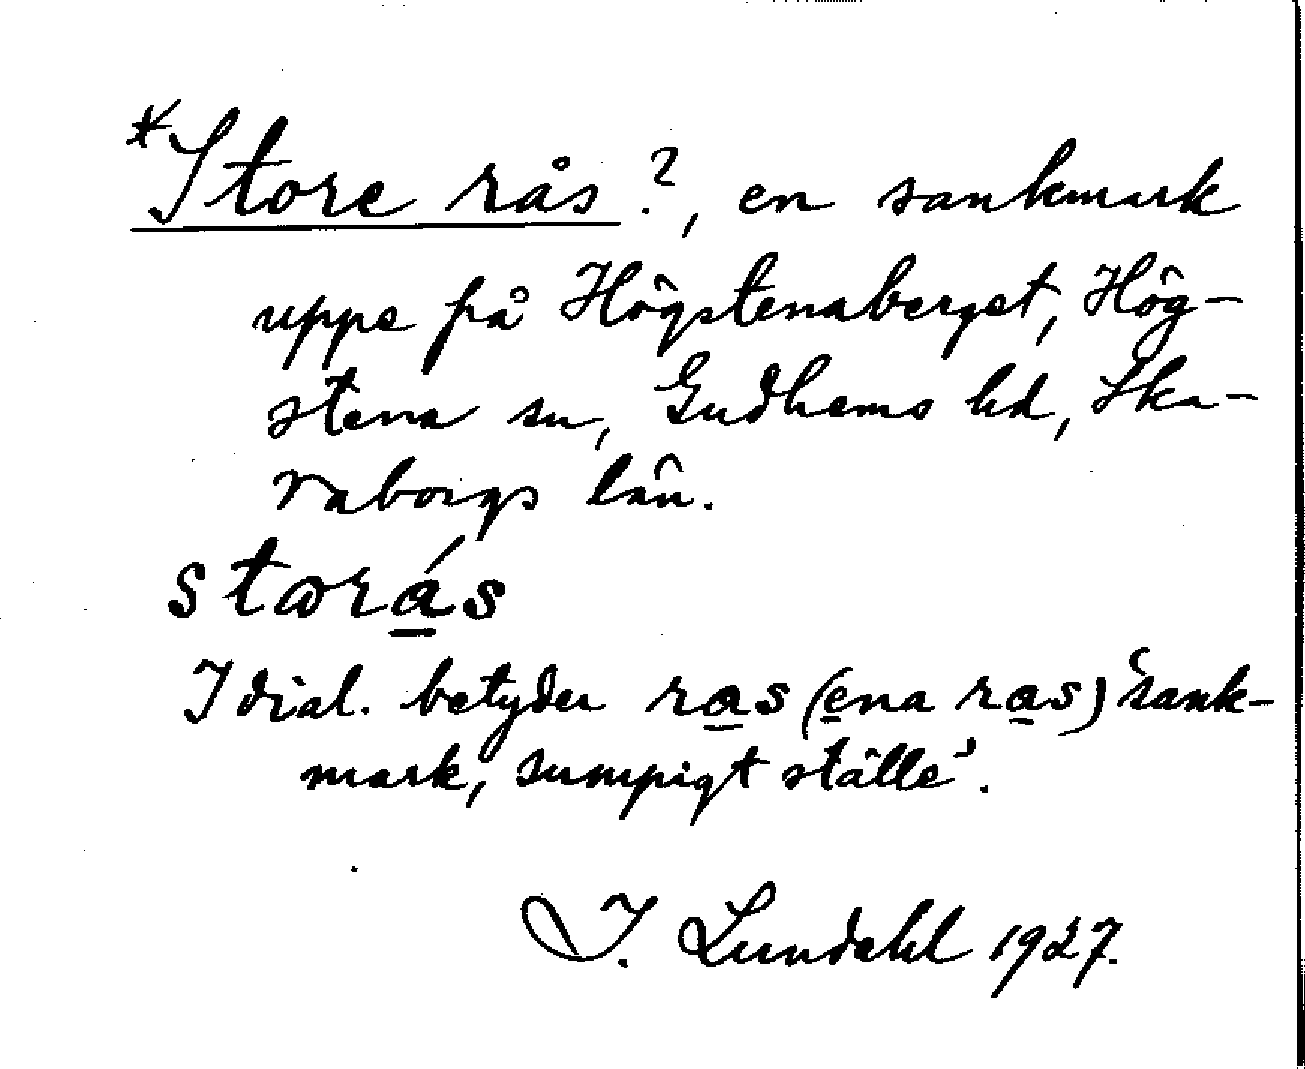 *Store rås?, en sankmark
uppe på Högstenaberget, Hög-
stena sn, Gudhems hd, Ska-
raborgs län.
størá̲s
I dial. betyder ra̲s (e̲na ra̲s) ‘sank-
mark, sumpigt ställe’.
I. Lundahl 1927.